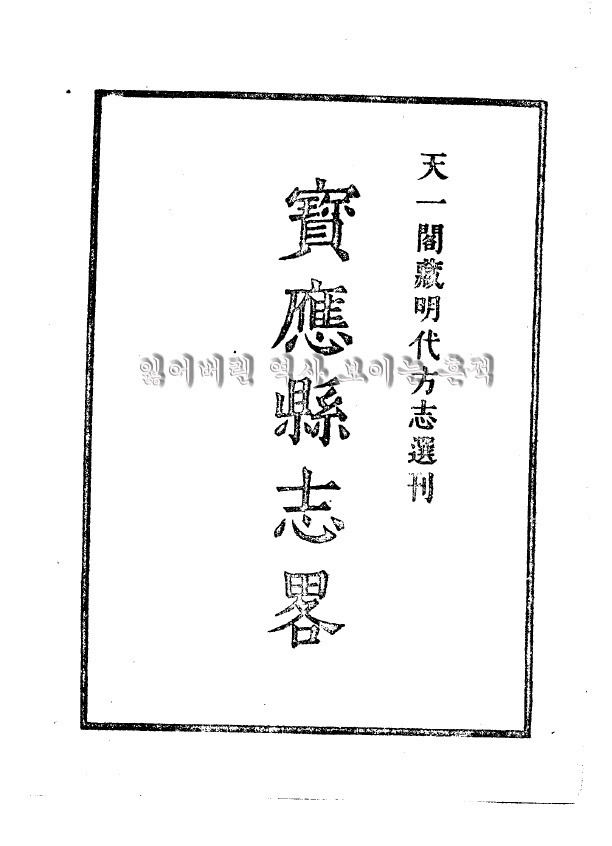 天一閣藏明代方志選刊
寶應縣志畧
잃어버린 역사 보이는 흔적